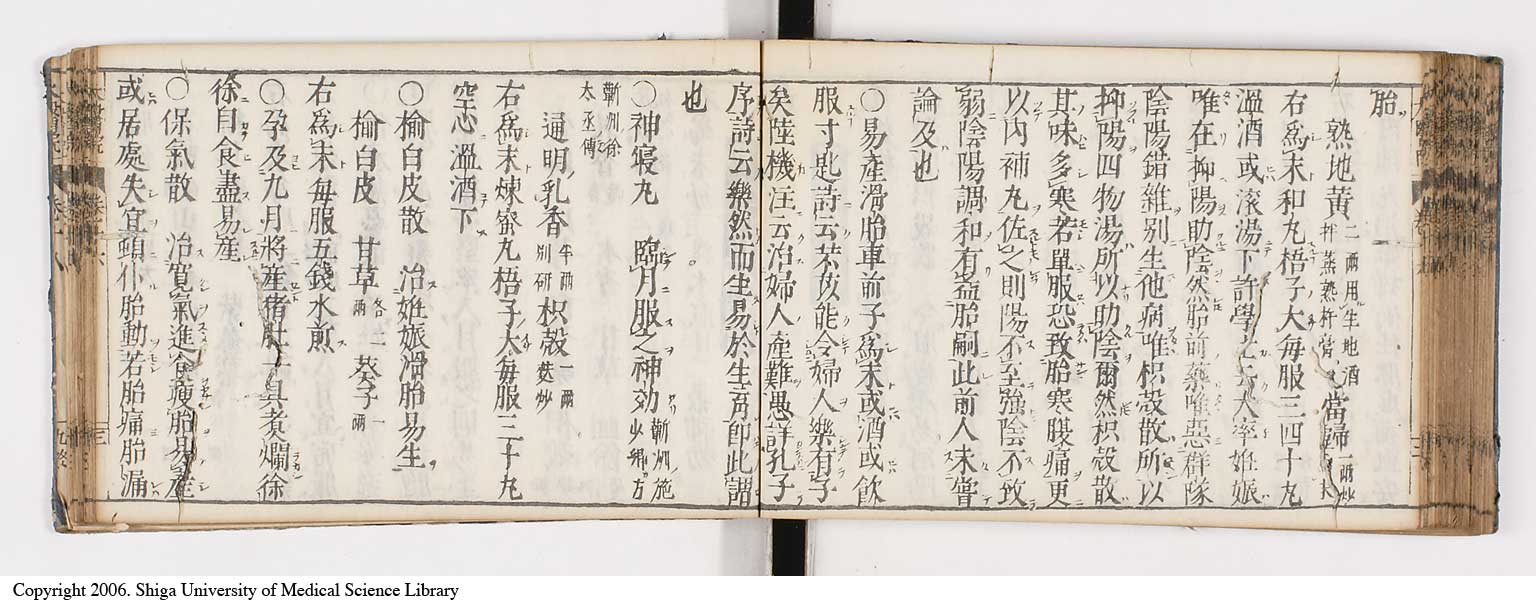 胎
熟地黄二兩用生地酒拌蒸熟杵膏 當歸一兩炒
右爲末和丸梧子大毎服三四十丸
溫酒或滾湯下許學士云大率姙娠
唯在抑陽助陰然胎前藥唯惡群隊
陰陽錯雜別生他病唯枳殻散所以
抑陽四物湯所以助陰爾然枳殻散
其味多寒若單服恐致胎寒腹痛更
以內補丸佐之則陽不至強陰不致
弱陰陽調和有益胎嗣此前人未嘗
論及也
〇易產滑胎車前子爲末或酒或飲
服寸匙詩云芣苡能令婦人樂有子
矣陸機注云治婦人產難愚詳孔子
序詩云樂然而生易於生育卽此謂
也
〇神寢丸 臨月服之神効蘄州施少卿方
蘄州徐太丞傳
通明乳香半兩別研 枳殻一兩麩炒
右爲末煉蜜丸梧子大毎服三十丸
空心溫酒下
〇榆白皮散 治姙娠滑胎易生
榆白皮 甘草各二兩 葵子一兩
右爲末毎服五錢水煎
〇孕及九月將產猪肚一具煮爛徐
徐自食盡易產
〇保氣散 治寛氣進食瘦胎易產
或居處失宜顚仆胎動若胎痛胎漏
Copyright 2006. Shiga University of Medical Science Library